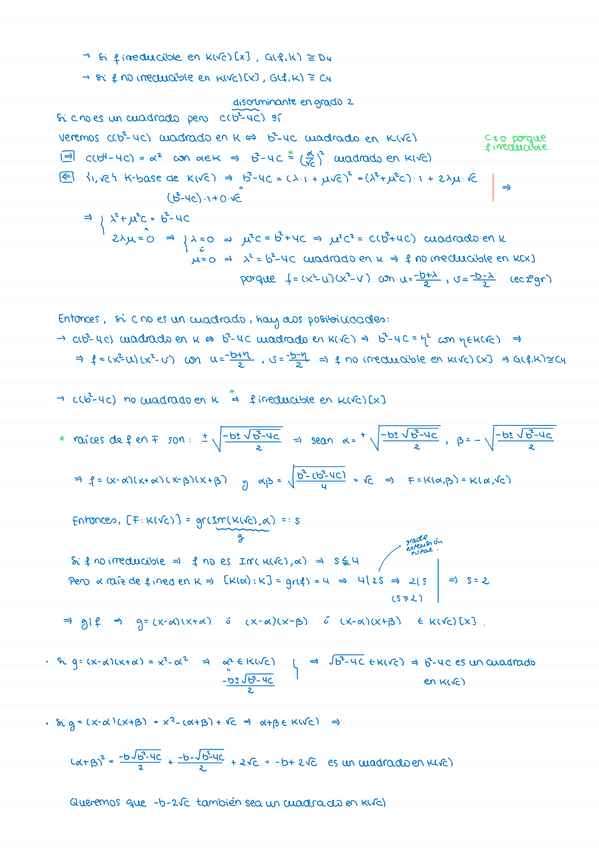 → Si f irreducible en K(√c)[x], G(f,K) ≅ D4
→ Si f no irreducible en K(√c)[x], G(f,K) ≅ C4
discriminante en grado 2
Si c no es un cuadrado pero c(b²-4c) sí
Veremos c(b²-4c) cuadrado en K ⇔ b²-4c cuadrado en K(√c)
c≠0 porque f irreducible
⇒ c(b⁴-4c) = α² con α∈K ⇒ b²-4c =* (α/√c)² cuadrado en K(√c)
⇐ {1,√c} K-base de K(√c) ⇒ b²-4c = (λ·1 + μ√c)² = (λ²+μ²c)·1 + 2λμ·√c ⇒
(b²-4c)·1+0·√c
⇒ { λ²+μ²c = b²-4c
2λμ = 0 ⇒ { λ=0 ⇒ μ²c = b²+4c ⇒ μ²c² = c(b²+4c) cuadrado en K
ó
μ=0 ⇒ λ² = b²-4c cuadrado en K ⇒ f no irreducible en K[x]
porque f=(x²-u)(x²-v) con u=(-b+λ)/2, v=(-b-λ)/2 (ec 2ºgr)
Entonces, si c no es un cuadrado, hay dos posibilidades:
→ c(b²-4c) cuadrado en K ⇔ b²-4c cuadrado en K(√c) ⇒ b²-4c = η² con η∈K(√c) ⇒
⇒ f=(x²-u)(x²-v) con u=(-b+η)/2, v=(-b-η)/2 ⇒ f no irreducible en K(√c)[x] ⇒ G(f,K)≅C4
→ c(b²-4c) no cuadrado en K ⇒* f irreducible en K(√c)[x]
* raíces de f en F son: ± √((-b±√(b²-4c))/2) ⇒ sean α = + √((-b±√(b²-4c))/2), β = - √((-b±√(b²-4c))/2)
⇒ f=(x-α)(x+α)(x-β)(x+β) y αβ = √((b²-(b²-4c))/4) = √c ⇒ F=K(α,β)=K(α,√c)
Entonces, [F:K(√c)] = gr(Irr(K(√c),α)) =: s
g
grado extensión total
Si f no irreducible ⇒ f no es Irr(K(√c),α) ⇒ s≨4
Pero α raíz de f irred en K ⇒ [K(α):K] = gr(f) = 4 ⇒ 4|2s ⇒ 2|s ⇒ s=2
(s≥2)
⇒ g|f ⇒ g=(x-α)(x+α) ó (x-α)(x-β) ó (x-α)(x+β) ∈ K(√c)[x].
· Si g=(x-α)(x+α) = x²-α² ⇒ α² ∈ K(√c) } ⇒ √(b²-4c) ∈ K(√c) ⇒ b²-4c es un cuadrado
(-b±√(b²-4c))/2
en K(√c)
· Si g=(x-α)(x+β) = x²-(α+β)+√c ⇒ α+β ∈ K(√c) ⇒
(α+β)² = (-b√(b²-4c))/2 + (-b-√(b²-4c))/2 + 2√c = -b+2√c es un cuadrado en K(√c)
Queremos que -b-2√c también sea un cuadrado en K(√c)